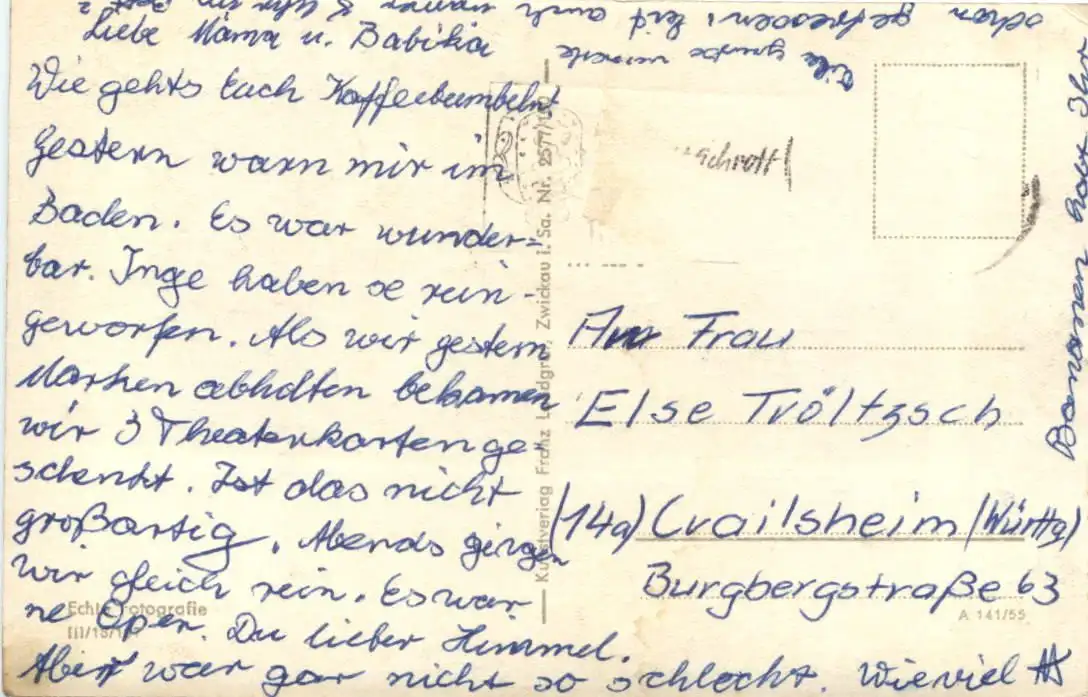 Liebe Mama u. Babika
Wie gehts Euch Kaffeebumbeln
Gestern warn mir im
Baden. Es war wunder-
bar. Inge haben se rein-
geworfen. Als wir gestern
Marken abholten bekamen
wir 3 Theaterkarten ge
schenkt. Ist das nicht
großartig. Abends gingen
wir gleich rein. Es war
ne Oper. Du lieber Himmel.
Aber war gar nicht so schlecht. Wieviel
Bananen habt Ihr
schon gefressen, seid auch immer 8 Uhr im Bett?
Viele Grüße
Kunstverlag Franz Landgraf, Zwickau i. Sa. Nr. 2577/
Schrott
Frau
Else Tröltzsch
(14a) Crailsheim (Württg)
Burgbergstraße 63
Echte Fotografie
III/18/
A 141/55